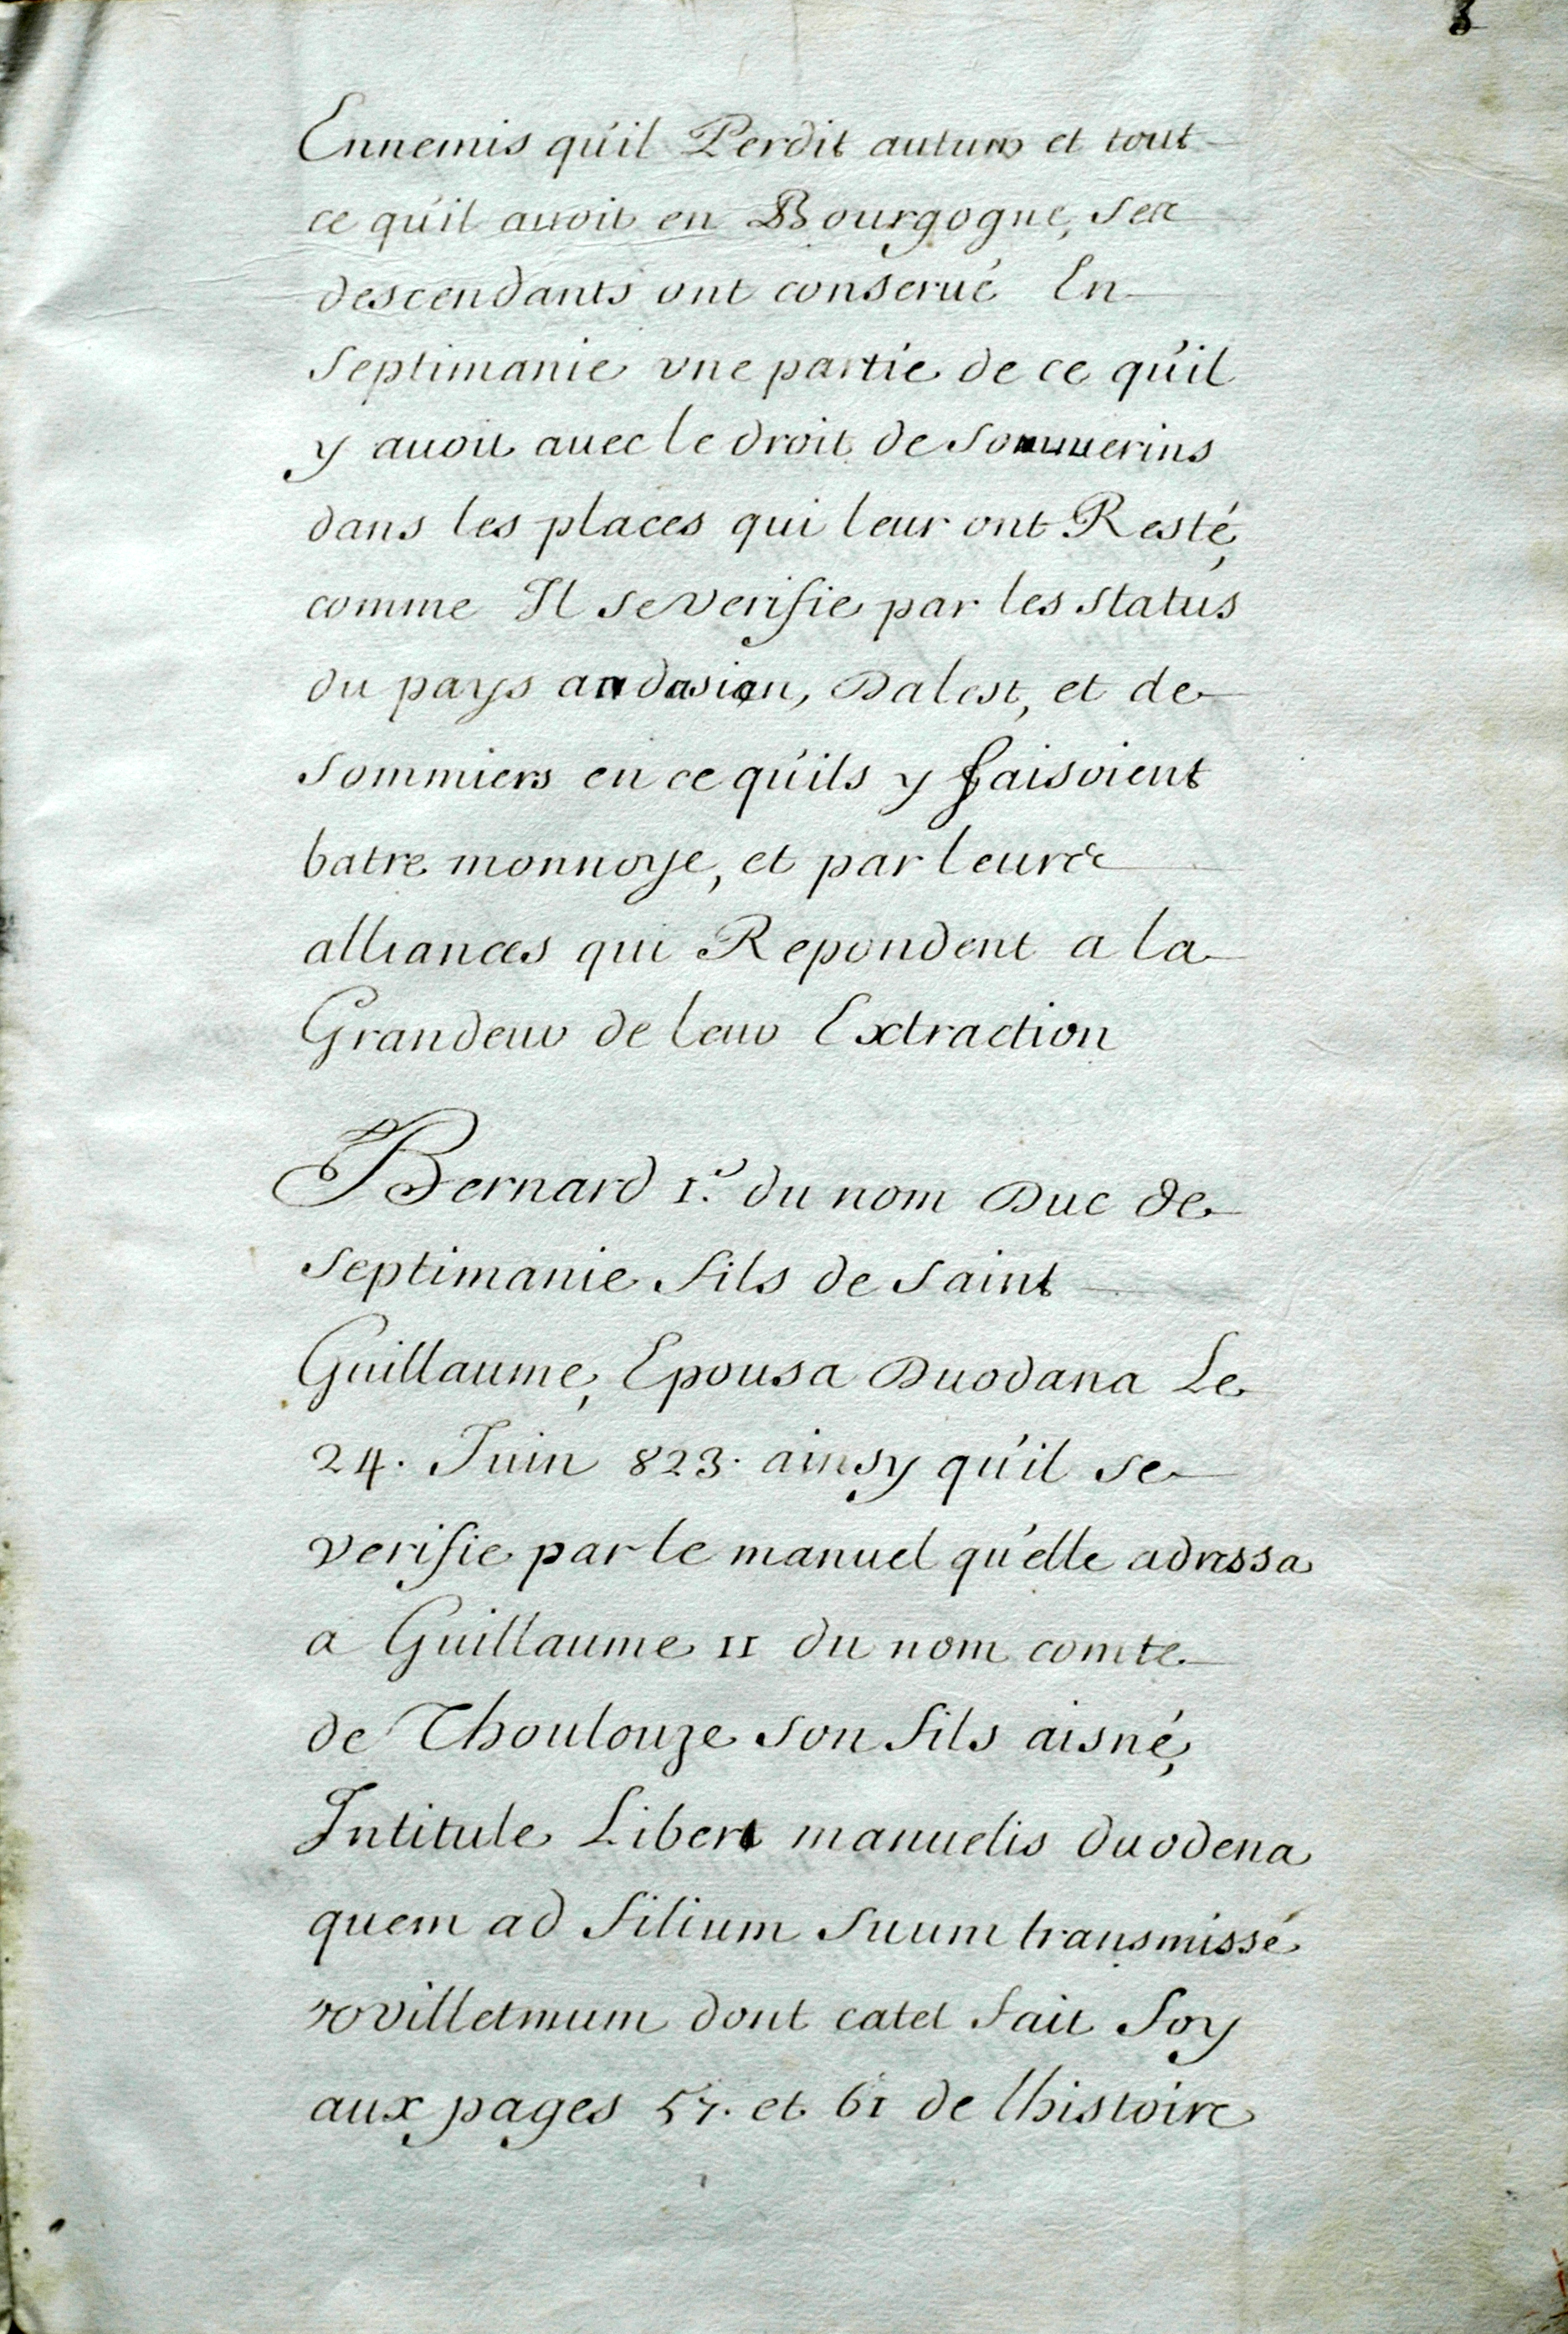 3
Ennemis qu'il Perdit autun et tout
ce qu'il auoit en Bourgogne, ses
descendants ont conserué En
Septimanie vne partie de ce qu'il
y auoit auec le droit de Souuerins
dans les places qui leur ont Resté,
comme Il se verifie par les status
du pays andasian, Dalest, et de
Sommiers en ce qu'ils y faisoient
batre monnoye, et par leurs
alliances qui Repondent a la
Grandeur de leur Extraction
Bernard 1.er du nom Duc de
Septimanie fils de Saint
Guillaume, Epousa Duodana Le
24. Juin 823. ainsy qu'il se
verifie par le manuel qu'elle adressa
a Guillaume II du nom comte
de Thoulouze son fils aisné,
Intitule Liber manuelis duodena
quem ad filium suum transmissé
Wvilletmum dont catel fait foy
aux pages 57. et 61 de lhistoire